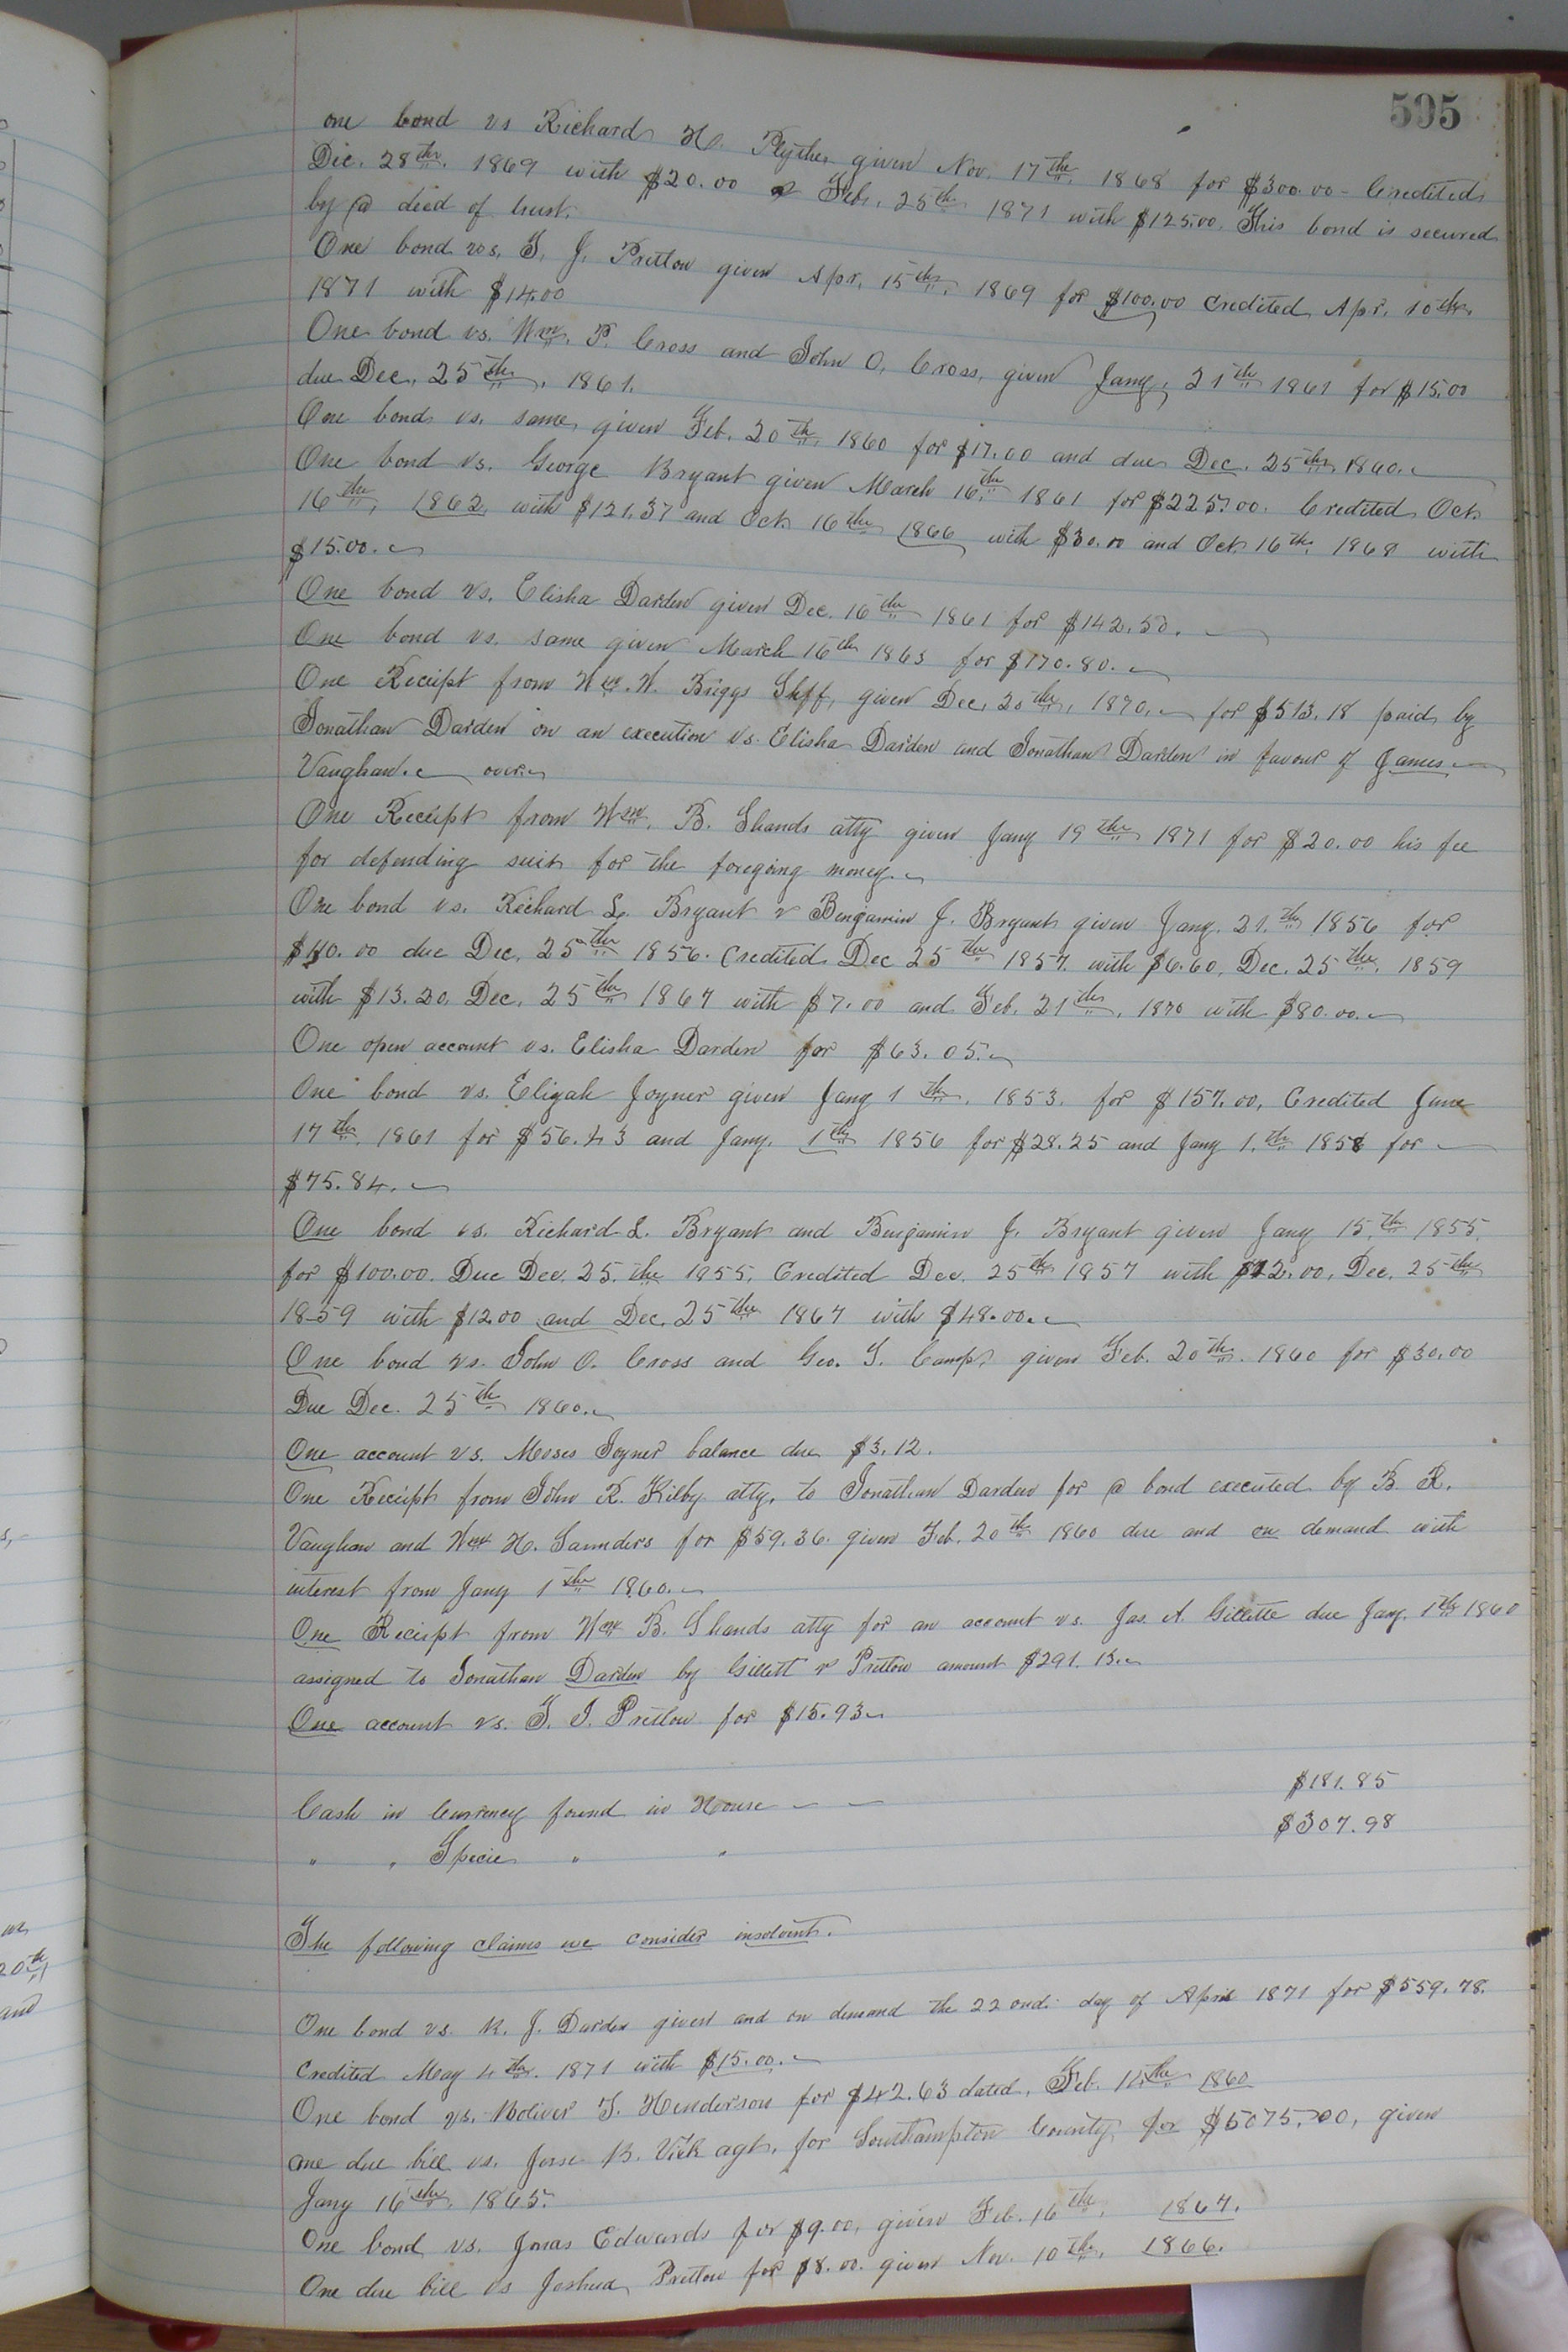 595
one bond vs Richard H. Plythe given Nov. 17th 1868 for $300.00 - Credited
Dec. 28th. 1869 with $20.00 & Feb. 25th 1871 with $125.00. This bond is secured
by a deed of trust.
One bond vs. T. J. Pretlow given Apr. 15th. 1869 for $100.00 credited Apr. 10th.
1871 with $14.00
One bond vs. Wm. P. Cross and John O. Cross, given Jany. 21th 1861 for $15.00
due Dec. 25th, 1861.
One bond vs. same, given Feb. 20th, 1860 for $17.00 and due Dec. 25th 1860.
One bond vs. George Bryant given March 16th 1861 for $225.00. Credited Oct.
16th, 1862, with $121.37 and Oct. 16th 1866 with $30.00 and Oct. 16th 1868 with
$15.00.
One bond vs. Elisha Darden given Dec. 16th 1861 for $142.50.
One bond vs. same given March 16th 1863 for $170.80.
One Receipt from Wm. W. Briggs Shff, given Dec. 20th, 1870, for $513.18 paid by
Jonathan Darden on an execution vs. Elisha Darden and Jonathan Darden in favour of James
Vaughan. over.
One Receipt from Wm. B. Shands atty given Jany 19th 1871 for $20.00 his fee
for defending suit for the foregoing money.
One bond vs. Richard L. Bryant & Benjamin J. Bryant given Jany. 21.th 1856 for
$110.00 due Dec. 25th 1856. Credited Dec 25th 1857. with $6.60, Dec. 25th, 1859
with $13.20, Dec. 25th 1867 with $7.00 and Feb. 21th, 1870 with $80.00.
One open account vs. Elisha Darden for $63.05.
One bond vs. Eligah Joyner given Jany 1th. 1853. for $157.00, Credited June
17th. 1861 for $56.43 and Jany. 1th 1856 for $28.25 and Jany 1.th 1858 for
$75.84.
One bond vs. Richard L. Bryant and Benjamin J. Bryant given Jany 15.th 1855.
for $100.00. Due Dec. 25.th 1855. Credited Dec. 25th 1857 with $12.00, Dec. 25th
1859 with $12.00 and Dec. 25th 1867 with $48.00.
One bond vs. John O. Cross and Geo. T. Camp, given Feb. 20th. 1860 for $30.00
Due Dec. 25th 1860.
One account vs. Moses Joyner balance due $3.12.
One Receipt from John R. Kilby atty. to Jonathan Darden for a bond executed by B. R.
Vaughan and Wm H. Saunders for $59.36 given Feb. 20th 1860 due and on demand with
interest from Jany 1th 1860.
One Receipt from Wm B. Shands atty for an account vs. Jas. A. Gillette due Jany. 1th 1860
assigned to Jonathan Darden by Gillett & Pretlow amount $291.13.
One account vs. T. J. Pretlow for $15.93
Cash in Currency found in House $181.85
" " Specie " " $307.98
The following claims we consider insolvent.
One bond vs. R. J. Darden given and on demand the 22ond. day of April 1871 for $559.78.
Credited May 4th. 1871 with $15.00.
One bond vs. Boliver T. Henderson for $42.63 dated, Feb. 14th 1860
One due bill vs. Jesse B. Vick agt. for Southampton County for $5075.00, given
Jany 16th. 1865.
One bond vs. Jonas Edwards for $9.00, given Feb. 16th, 1867.
One due bill vs Joshua Pretlow for $8.00. given Nov. 10th, 1866.